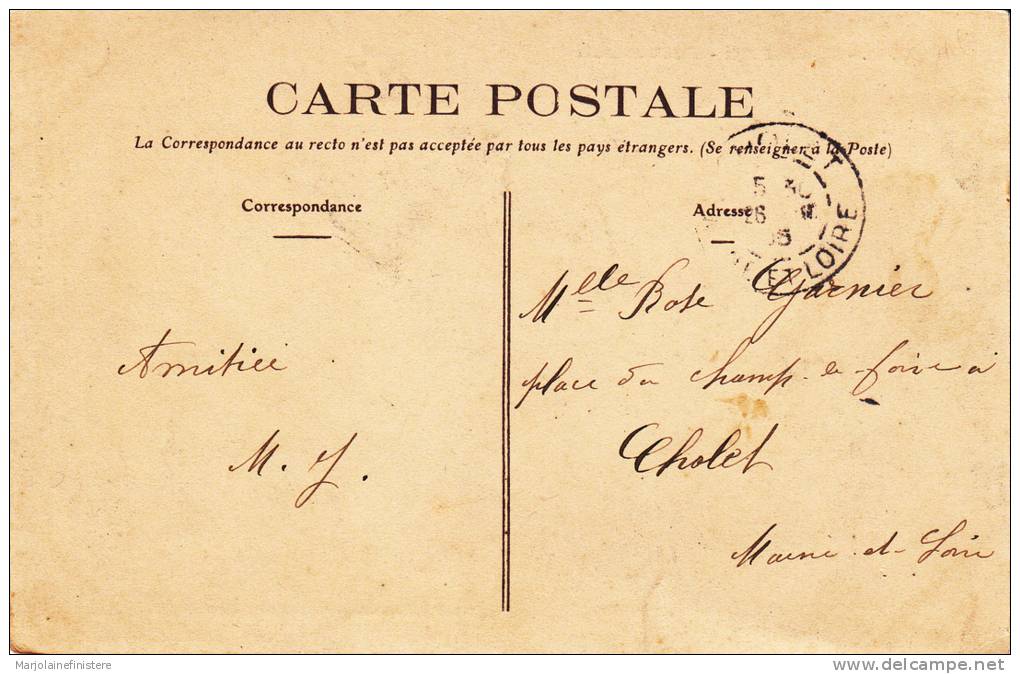 CARTE POSTALE
La Correspondance au recto n'est pas acceptée par tous les pays étrangers. (Se renseigner à la Poste)
Correspondance
Adresse
ET LOIRE
Amitiée
M. J.
Melle Rose Garnier
place du champ-de-foire à
Cholet
Maine-et-Loire
Marjolainefinistere
www.delcampe.net